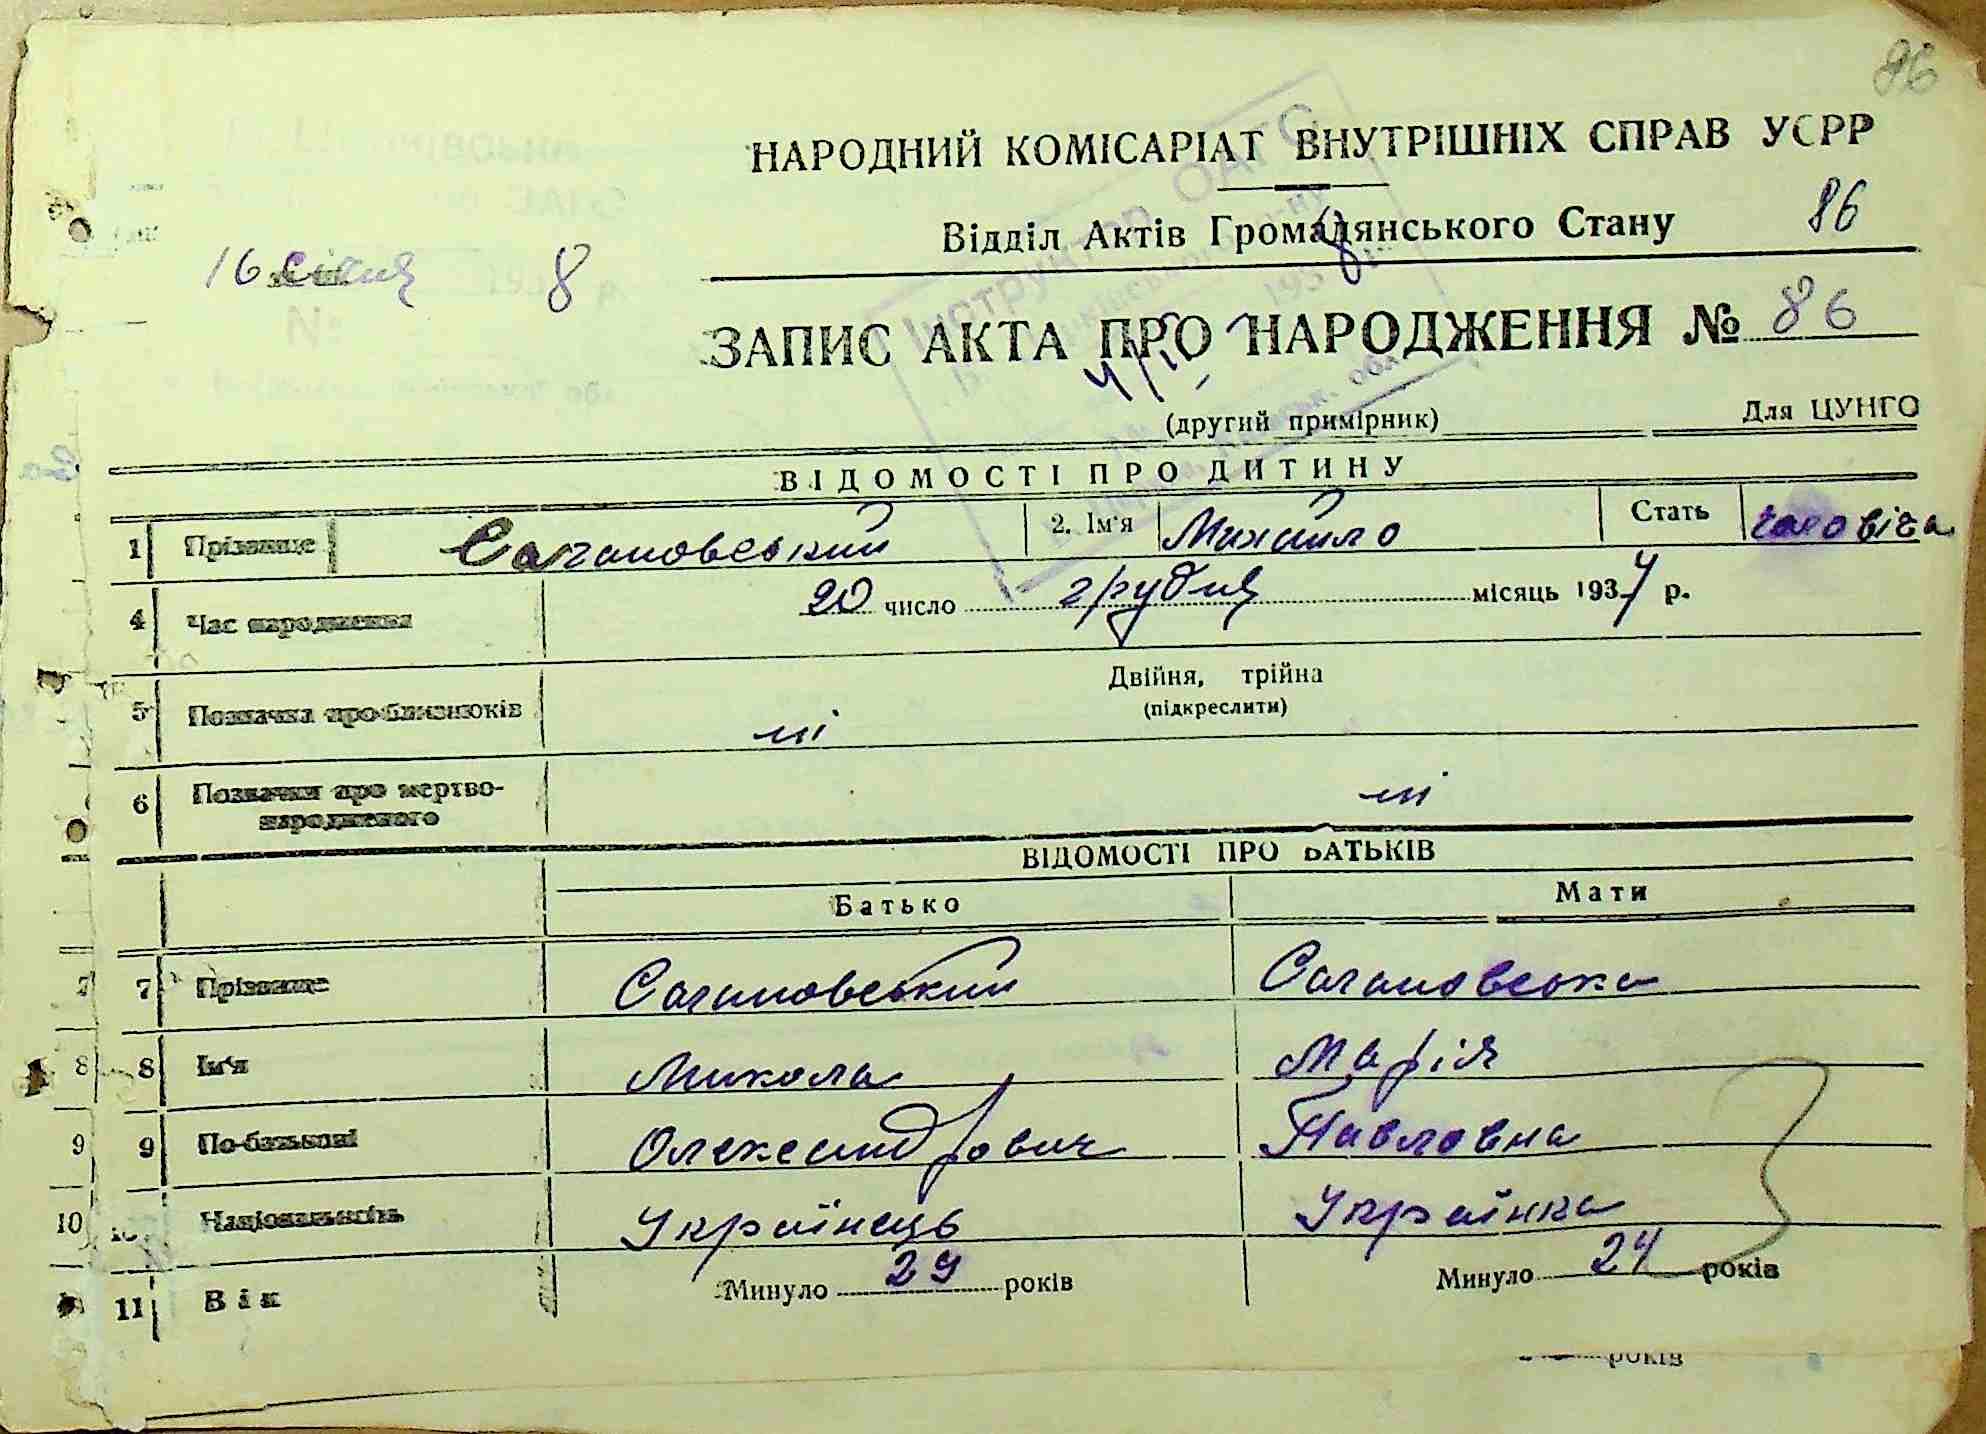 86
НАРОДНИЙ КОМІСАРІАТ ВНУТРІШНІХ СПРАВ УСРР
Відділ Актів Громадянського Стану 86
16 січня 8
ЗАПИС АКТА ПРО НАРОДЖЕННЯ № 86
(другий примірник) Для ЦУНГО
ВІДОМОСТІ ПРО ДИТИНУ
1 Прізвище Сагановський 2. Ім'я Михайло Стать чоловіча
4 Час народження 20 число грудня місяць 1937 р.
Двійня, трійна
5 Позначка про близнюків (підкреслити)
ні
6 Позначки про мертво- ні
народженого
ВІДОМОСТІ ПРО БАТЬКІВ
Батько Мати
7 7 Прізвище Сагановський Сагановська
8 8 Ім'я Микола Марія
9 9 По-батькові Олександрович Павловна
10 Національність Українець Українка
11 Вік Минуло 29 років Минуло 24 років
років